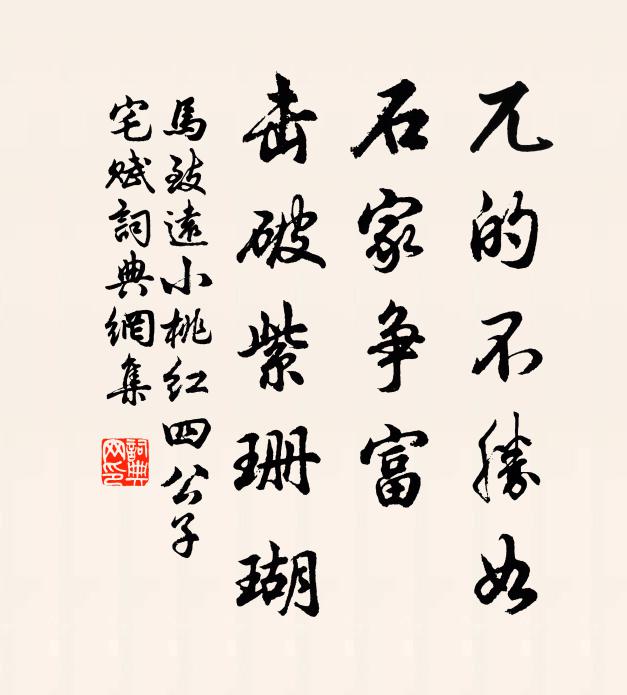 兀的不勝如
石家争富
击破紫珊瑚
馬致遠小桃红四公子
宅赋詞典網集
詞典网印